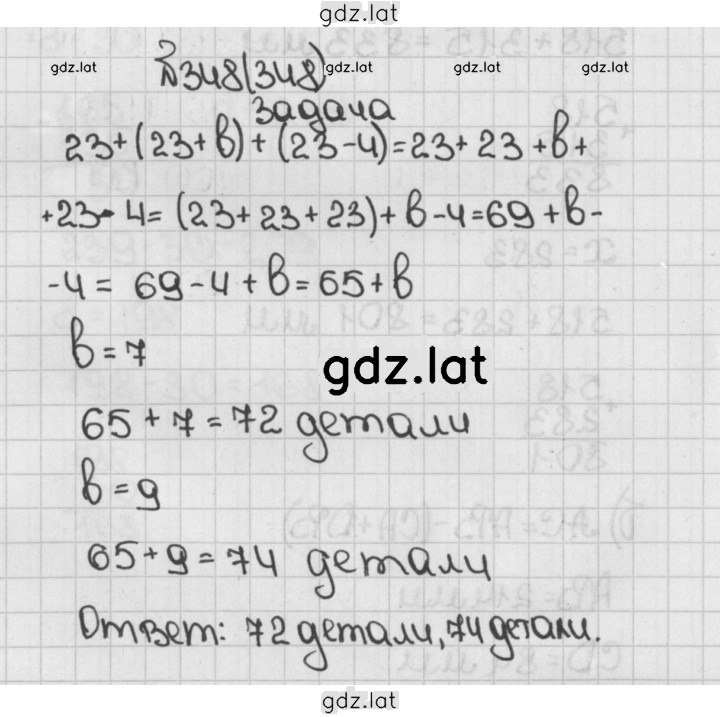 gdz.lat
№348(348)
gdz.lat gdz.lat gdz.lat gdz.lat
Задача
23+(23+b)+(23-4)=23+23+b+
+23-4=(23+23+23)+b-4=69+b-
-4=69-4+b=65+b
b=7
gdz.lat
65+7=72 детали
b=9
65+9=74 детали
Ответ: 72 детали, 74 детали.
gdz.lat